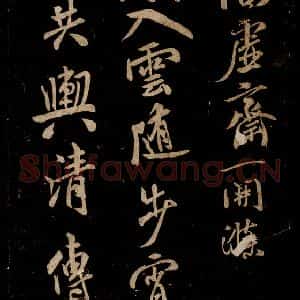 虚齋一開滌
入雲随步齊
共輿清傳
Shufawang.CN